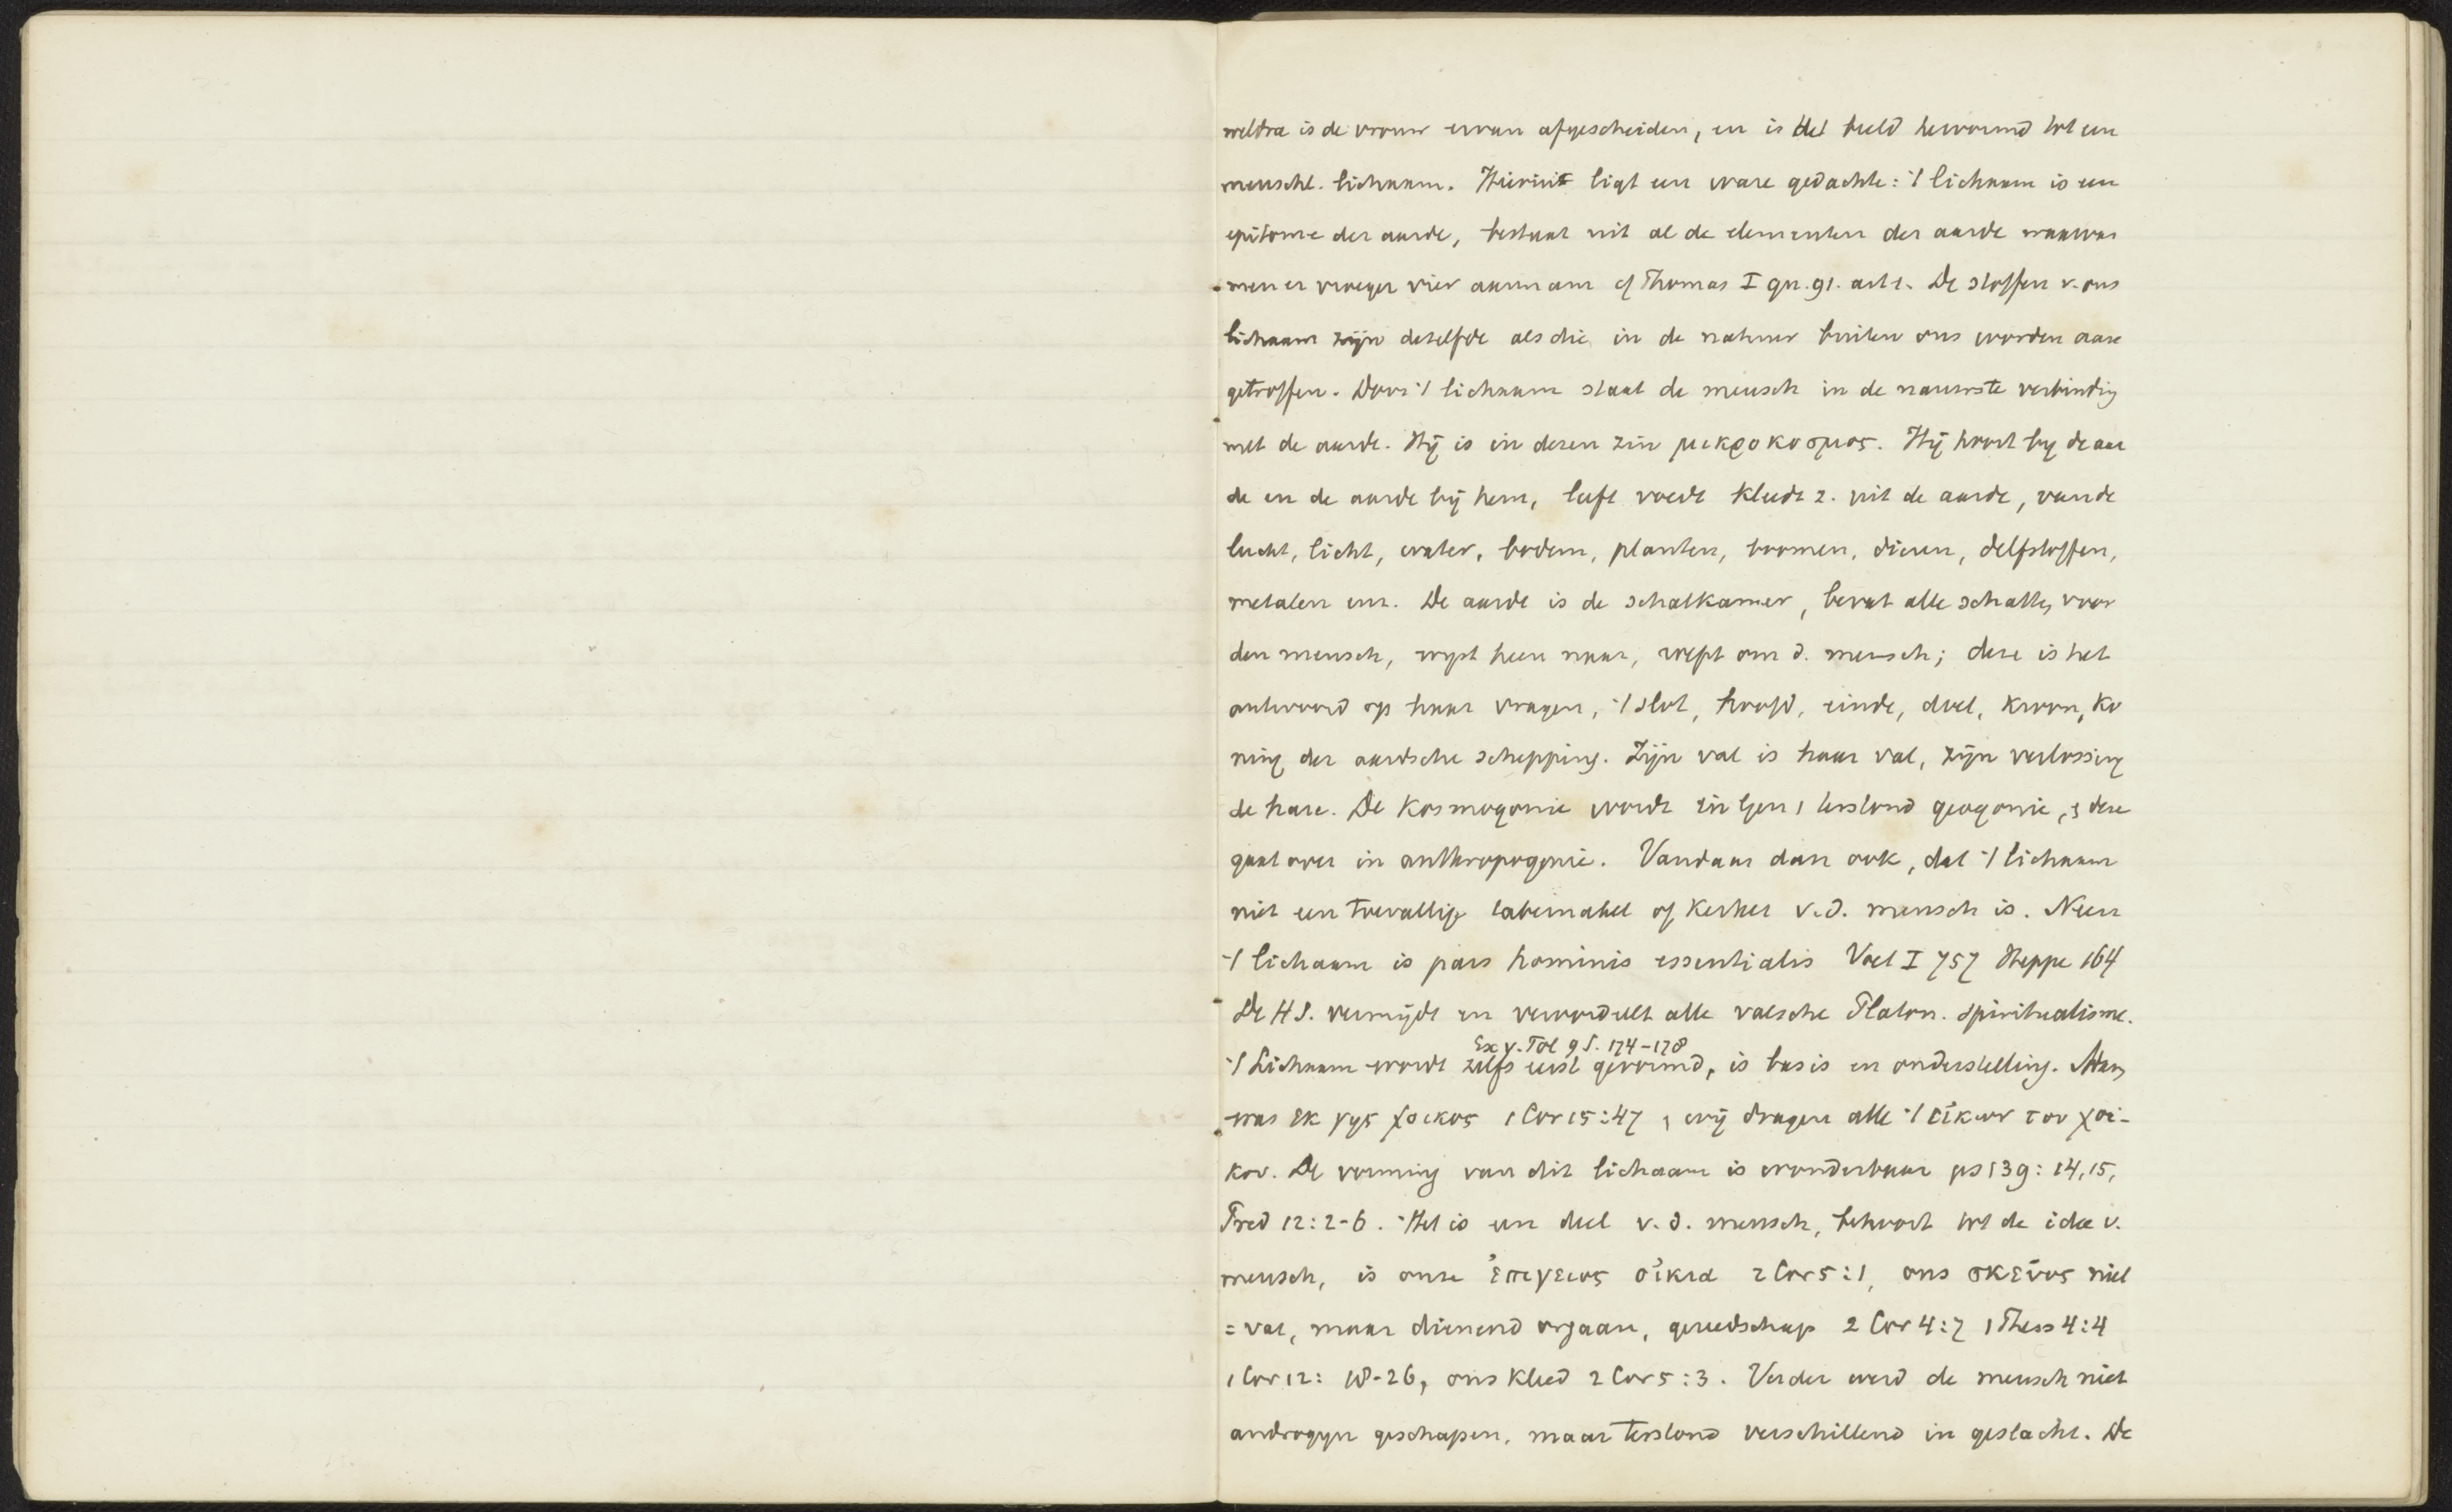 weldra is de vrouw ervan afgescheiden, en is het beeld hervormd tot een
menschl. lichaam. Hierin ligt een ware gedachte: 't lichaam is een
epitome der aarde, bestaat uit al de elementen der aarde waarvan
men er vroeger vier aannam cf Thomas I qu. 91. art 1. De stoffen v. ons
lichaam zijn dezelfde als die in de natuur buiten ons worden aan
getroffen. Door 't lichaam staat de mensch in de nauwste verbinding
met de aarde. Hij is in dezen zin μικροκοσμος. Hij hoort bij de aar
de en de aarde bij hem, leeft voedt kleedt z. uit de aarde, van de
lucht, licht, water, bodem, planten, boomen, dieren, delfstoffen,
metalen enz. De aarde is de schatkamer, bevat alle schatten voor
den mensch, wijst heen naar, roept om d. mensch; deze is het
antwoord op haar vragen, 't slot, hoofd, einde, doel, kroon, ko
ning der aardsche schepping. Zijn val is haar val, zijn verlossing
de hare. De kosmogonie wordt in Gen 1 terstond geogonie, & deze
gaat over in anthropogonie. Vandaar dan ook, dat 't lichaam
niet een toevallige tabernakel of kerker v. d. mensch is. Neen
't lichaam is pars hominis essentialis Voet I 757 Heppe 164
De H S. vermijdt en veroordeelt alle valsche Platon. spiritualisme.
Ex v. Tol 9 S. 174-178
't Lichaam wordt zelfs eerst gevormd, is basis en onderstelling. Adam
was εκ γης χοικος 1 Cor 15:47 & wij dragen alle 't εἰκων του χοι-
κου. De vorming van dit lichaam is wonderbaar ps 139: 14, 15,
Pred 12:2-6. Het is een deel v. d. mensch, behoort tot de idee v.
mensch, is onze ἐπιγειος οἰκια 2 Cor 5:1, ons σκεῦος niet
= vat, maar dienend orgaan, gereedschap 2 Cor 4:7 1 Thess 4:4
1 Cor 12: 18-26, ons kleed 2 Cor 5:3. Verder werd de mensch niet
androgyn geschapen, maar terstond verschillend in geslacht. De